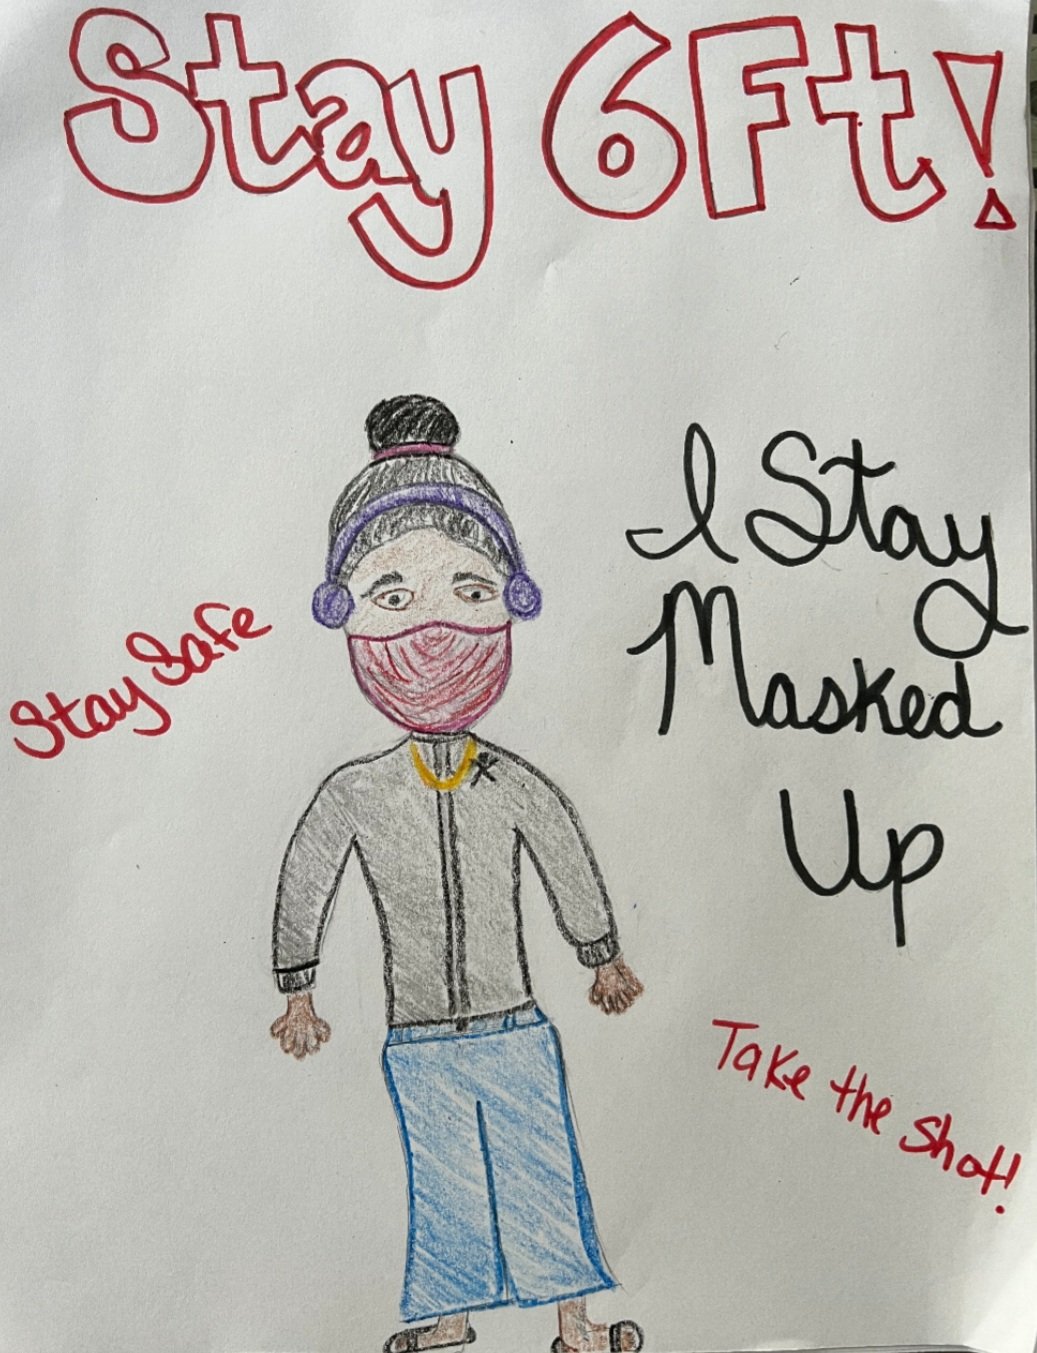 Stay 6Ft!
I Stay
Masked
Up
Stay Safe
Take the Shot!